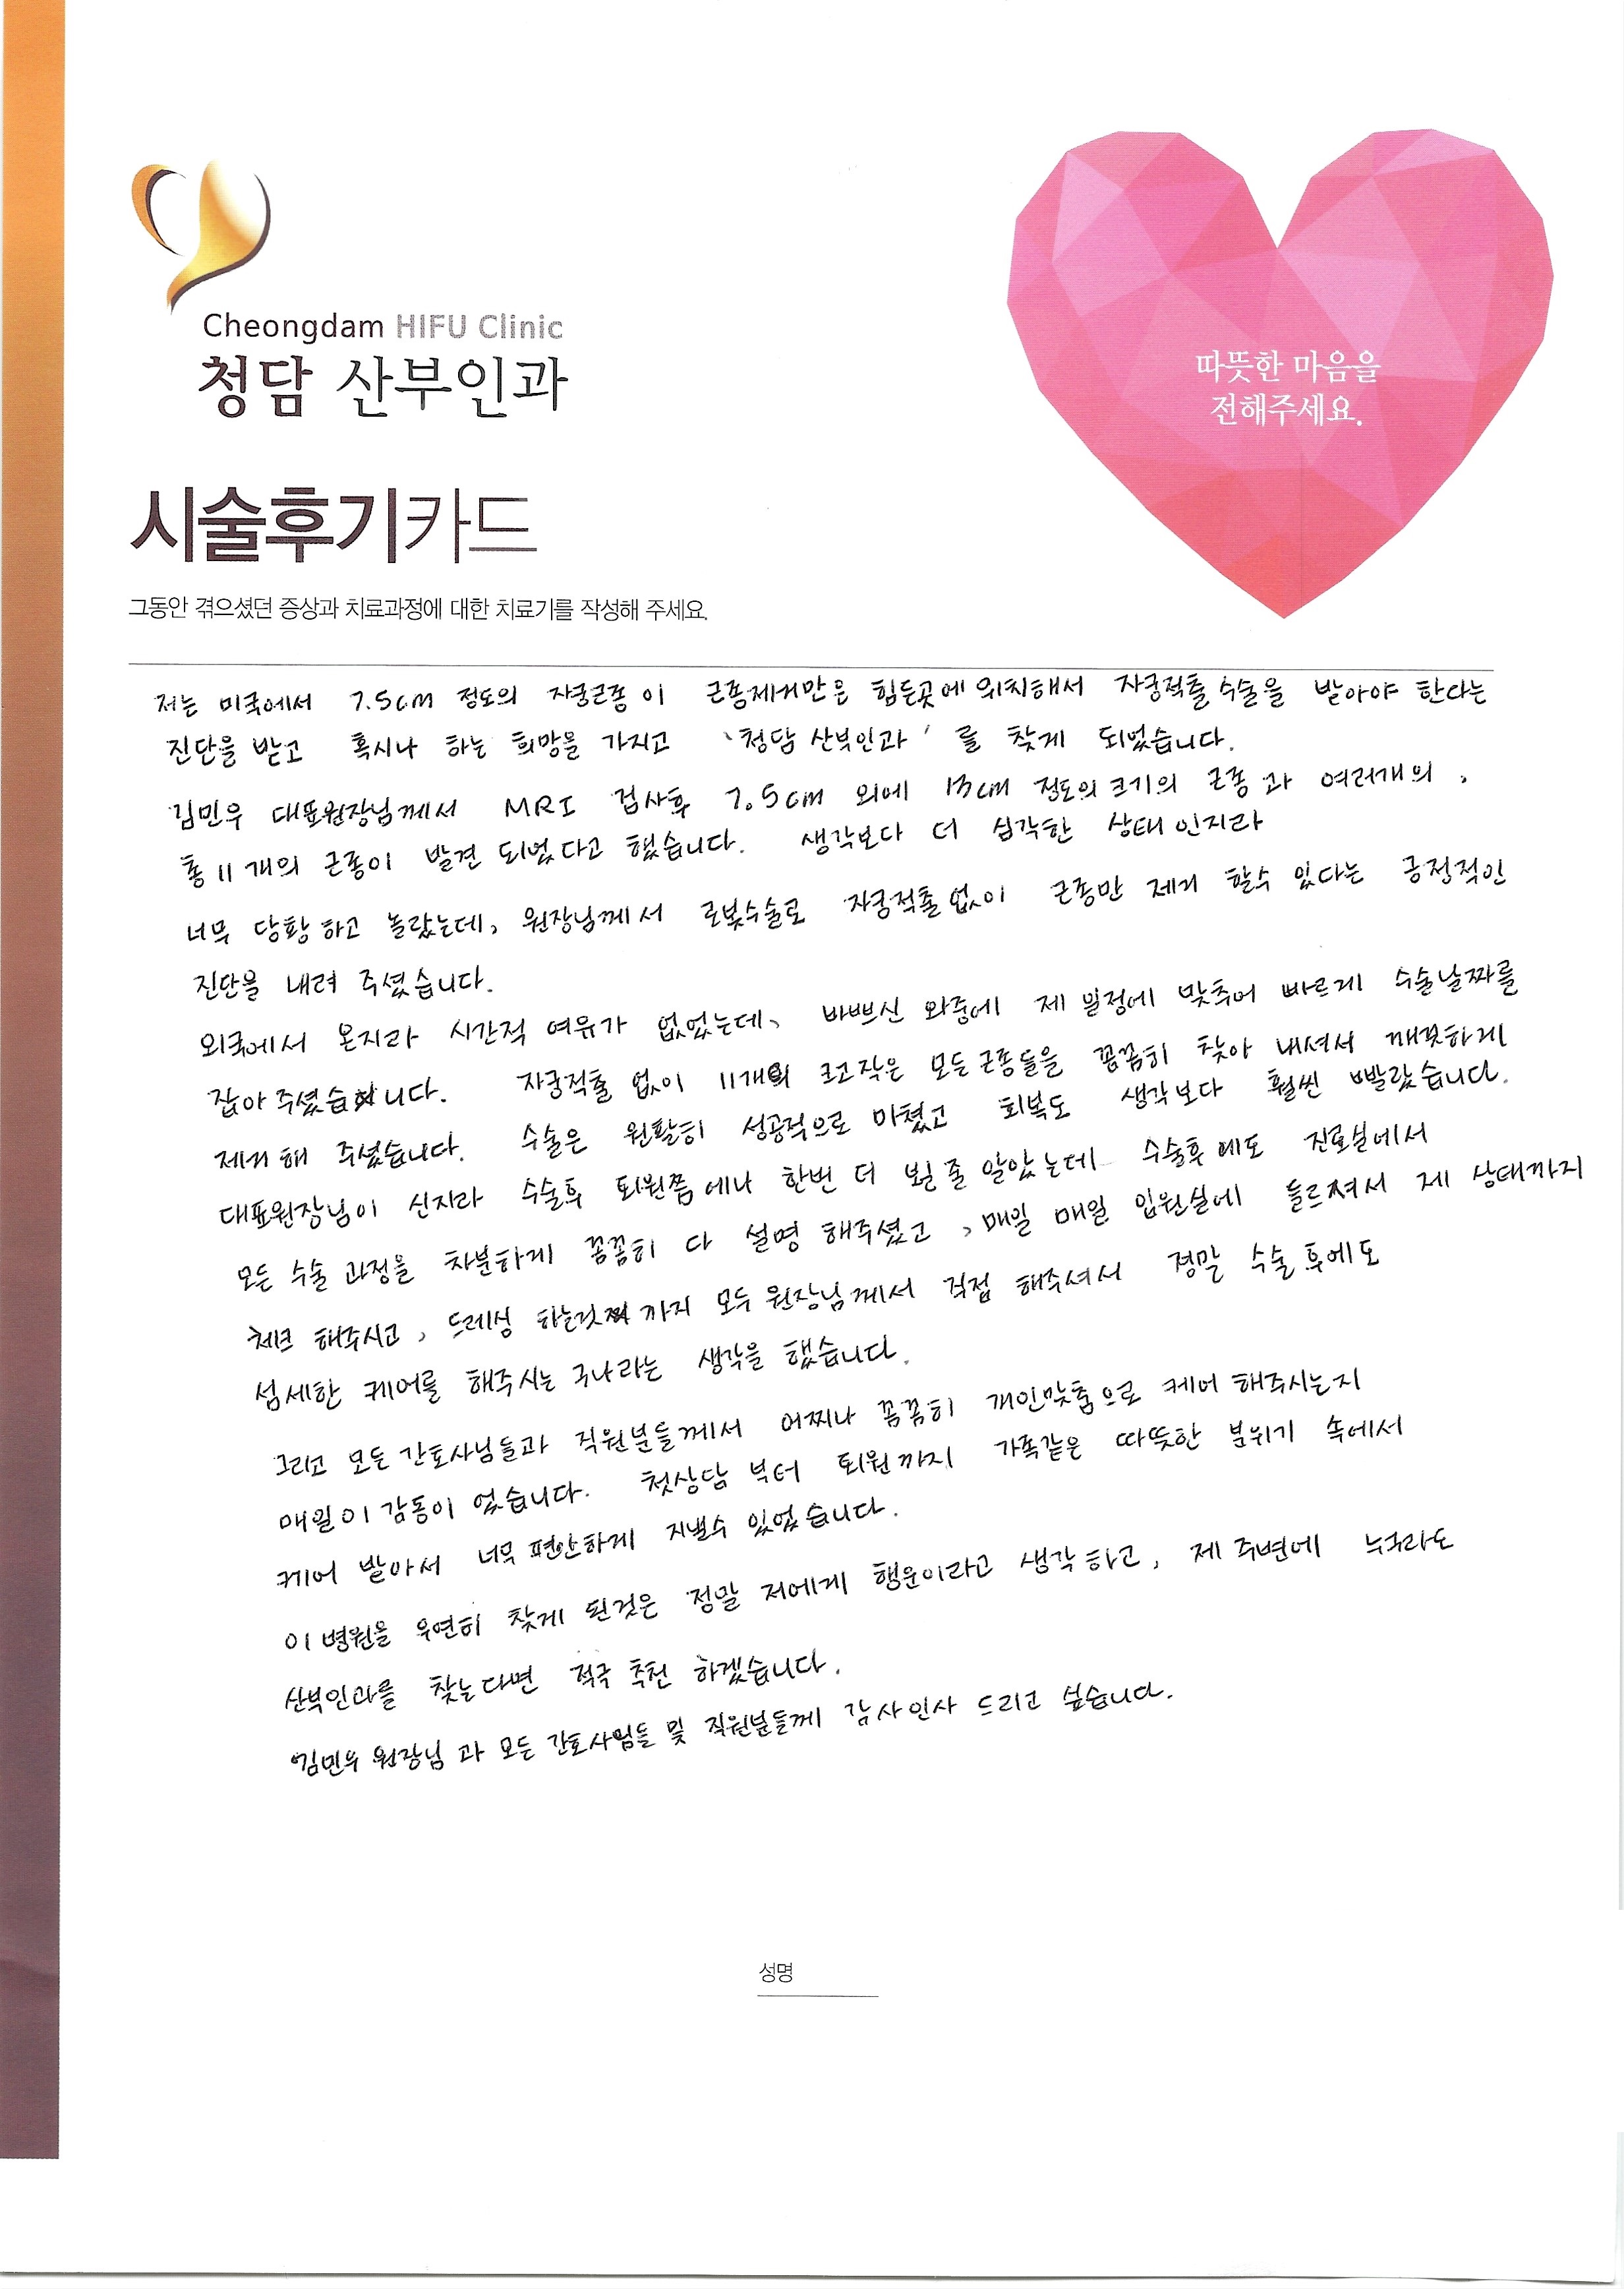 Cheongdam HIFU Clinic
청담 산부인과
따뜻한 마음을
전해주세요.
시술후기카드
그동안 겪으셨던 증상과 치료과정에 대한 치료기를 작성해 주세요.
저는 미국에서 7.5cm 정도의 자궁근종이 근종제거만은 힘든곳에 위치해서 자궁적출 수술을 받아야 한다는
진단을 받고 혹시나 하는 희망을 가지고 '청담 산부인과' 를 찾게 되었습니다.
김민우 대표원장님께서 MRI 검사후 7.5cm 외에 13cm 정도의 크기의 근종과 여러개의,
총 11개의 근종이 발견 되었다고 했습니다. 생각보다 더 심각한 상태인지라
너무 당황하고 놀랐는데, 원장님께서 로봇수술로 자궁적출없이 근종만 제거 할수 있다는 긍정적인
진단을 내려 주셨습니다.
외국에서 온지라 시간적 여유가 없었는데, 바쁘신 와중에 제 일정에 맞추어 빠르게 수술날짜를
잡아 주셨습니다. 자궁적출 없이 11개의 크고작은 모든근종들을 꼼꼼히 찾아 내셔서 깨끗하게
제거해 주셨습니다. 수술은 원활히 성공적으로 마쳤고 회복도 생각보다 훨씬 빨랐습니다.
대표원장님이 신지라 수술후 퇴원쯤에나 한번 더 뵐 줄 알았는데 수술후에도 진료실에서
모든 수술 과정을 차분하게 꼼꼼히 다 설명 해주셨고, 매일 매일 입원실에 들르셔서 제 상태까지
체크 해주시고, 드레싱 하는것 까지 모두 원장님께서 직접 해주셔서 정말 수술 후에도
섬세한 케어를 해주시는구나라는 생각을 했습니다.
그리고 모든 간호사님들과 직원분들께서 어찌나 꼼꼼히 개인맞춤으로 케어 해주시는지
매일이 감동이 었습니다. 첫상담 부터 퇴원까지 가족같은 따뜻한 분위기 속에서
케어 받아서 너무 편안하게 지낼수 있었습니다.
이 병원을 우연히 찾게 된것은 정말 저에게 행운이라고 생각하고, 제 주변에 누구라도
산부인과를 찾는다면 적극 추천 하겠습니다.
김민우 원장님 과 모든 간호사님들 및 직원분들께 감사인사 드리고 싶습니다.
성명